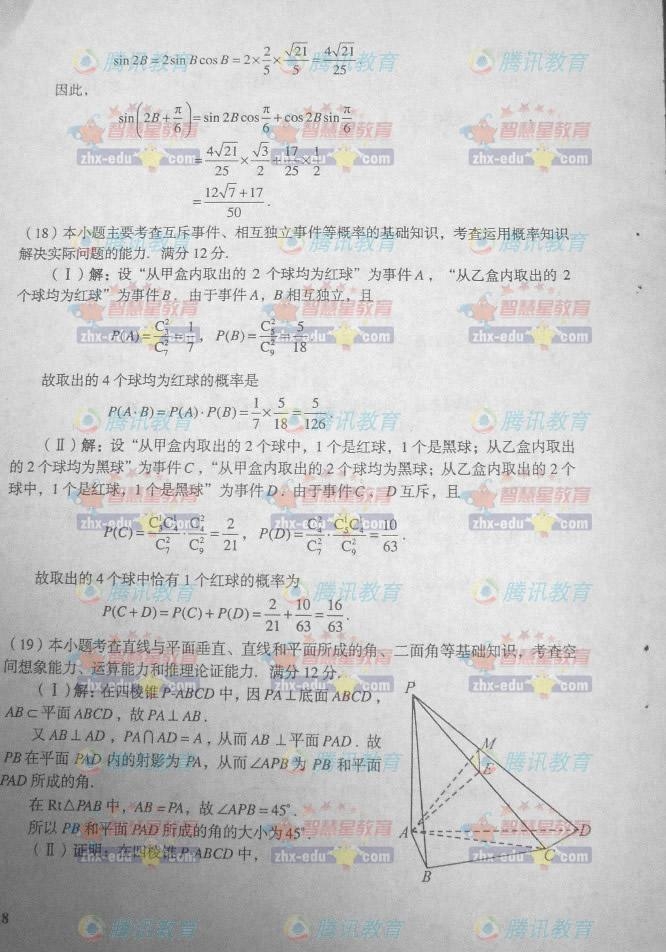 sin 2B = 2sin B cos B = 2×2/5×√21/5 = 4√21/25.
因此,
sin(2B+π/6) = sin 2B cos π/6 + cos 2B sin π/6
= 4√21/25 × √3/2 + 17/25 × 1/2
= (12√7+17)/50.
(18)本小题主要考查互斥事件、相互独立事件等概率的基础知识，考查运用概率知识
解决实际问题的能力. 满分 12 分.
(Ⅰ)解：设“从甲盒内取出的 2 个球均为红球”为事件 A ，“从乙盒内取出的 2
个球均为红球”为事件 B . 由于事件 A, B 相互独立，且
P(A) = C₃²/C₇² = 1/7， P(B) = C₅²/C₉² = 5/18
故取出的 4 个球均为红球的概率是
P(A·B) = P(A)·P(B) = 1/7 × 5/18 = 5/126.
(Ⅱ)解：设“从甲盒内取出的 2 个球中，1 个是红球，1 个是黑球；从乙盒内取出
的 2 个球均为黑球”为事件 C ，“从甲盒内取出的 2 个球均为黑球；从乙盒内取出的 2 个
球中，1 个是红球，1 个是黑球”为事件 D . 由于事件 C ， D 互斥，且
P(C) = C₃¹C₄¹/C₇² · C₄²/C₉² = 2/21， P(D) = C₄²/C₇² · C₅¹C₄¹/C₉² = 10/63.
故取出的 4 个球中恰有 1 个红球的概率为
P(C+D) = P(C)+P(D) = 2/21 + 10/63 = 16/63.
(19)本小题考查直线与平面垂直、直线和平面所成的角、二面角等基础知识，考查空
间想象能力、运算能力和推理论证能力. 满分 12 分.
(Ⅰ)解：在四棱锥 P-ABCD 中，因 PA⊥底面 ABCD ，
AB⊂平面 ABCD ，故 PA⊥AB .
又 AB⊥AD ，PA∩AD=A ，从而 AB ⊥平面 PAD . 故
PB 在平面 PAD 内的射影为 PA，从而∠APB 为 PB 和平面
PAD 所成的角.
在 Rt△PAB 中，AB=PA，故∠APB=45°.
所以 PB 和平面 PAD 所成的角的大小为 45°.
(Ⅱ)证明：在四棱锥 P-ABCD 中，
P
M
E
A
D
C
B
8
腾讯教育
智慧星教育
zhx-edu com